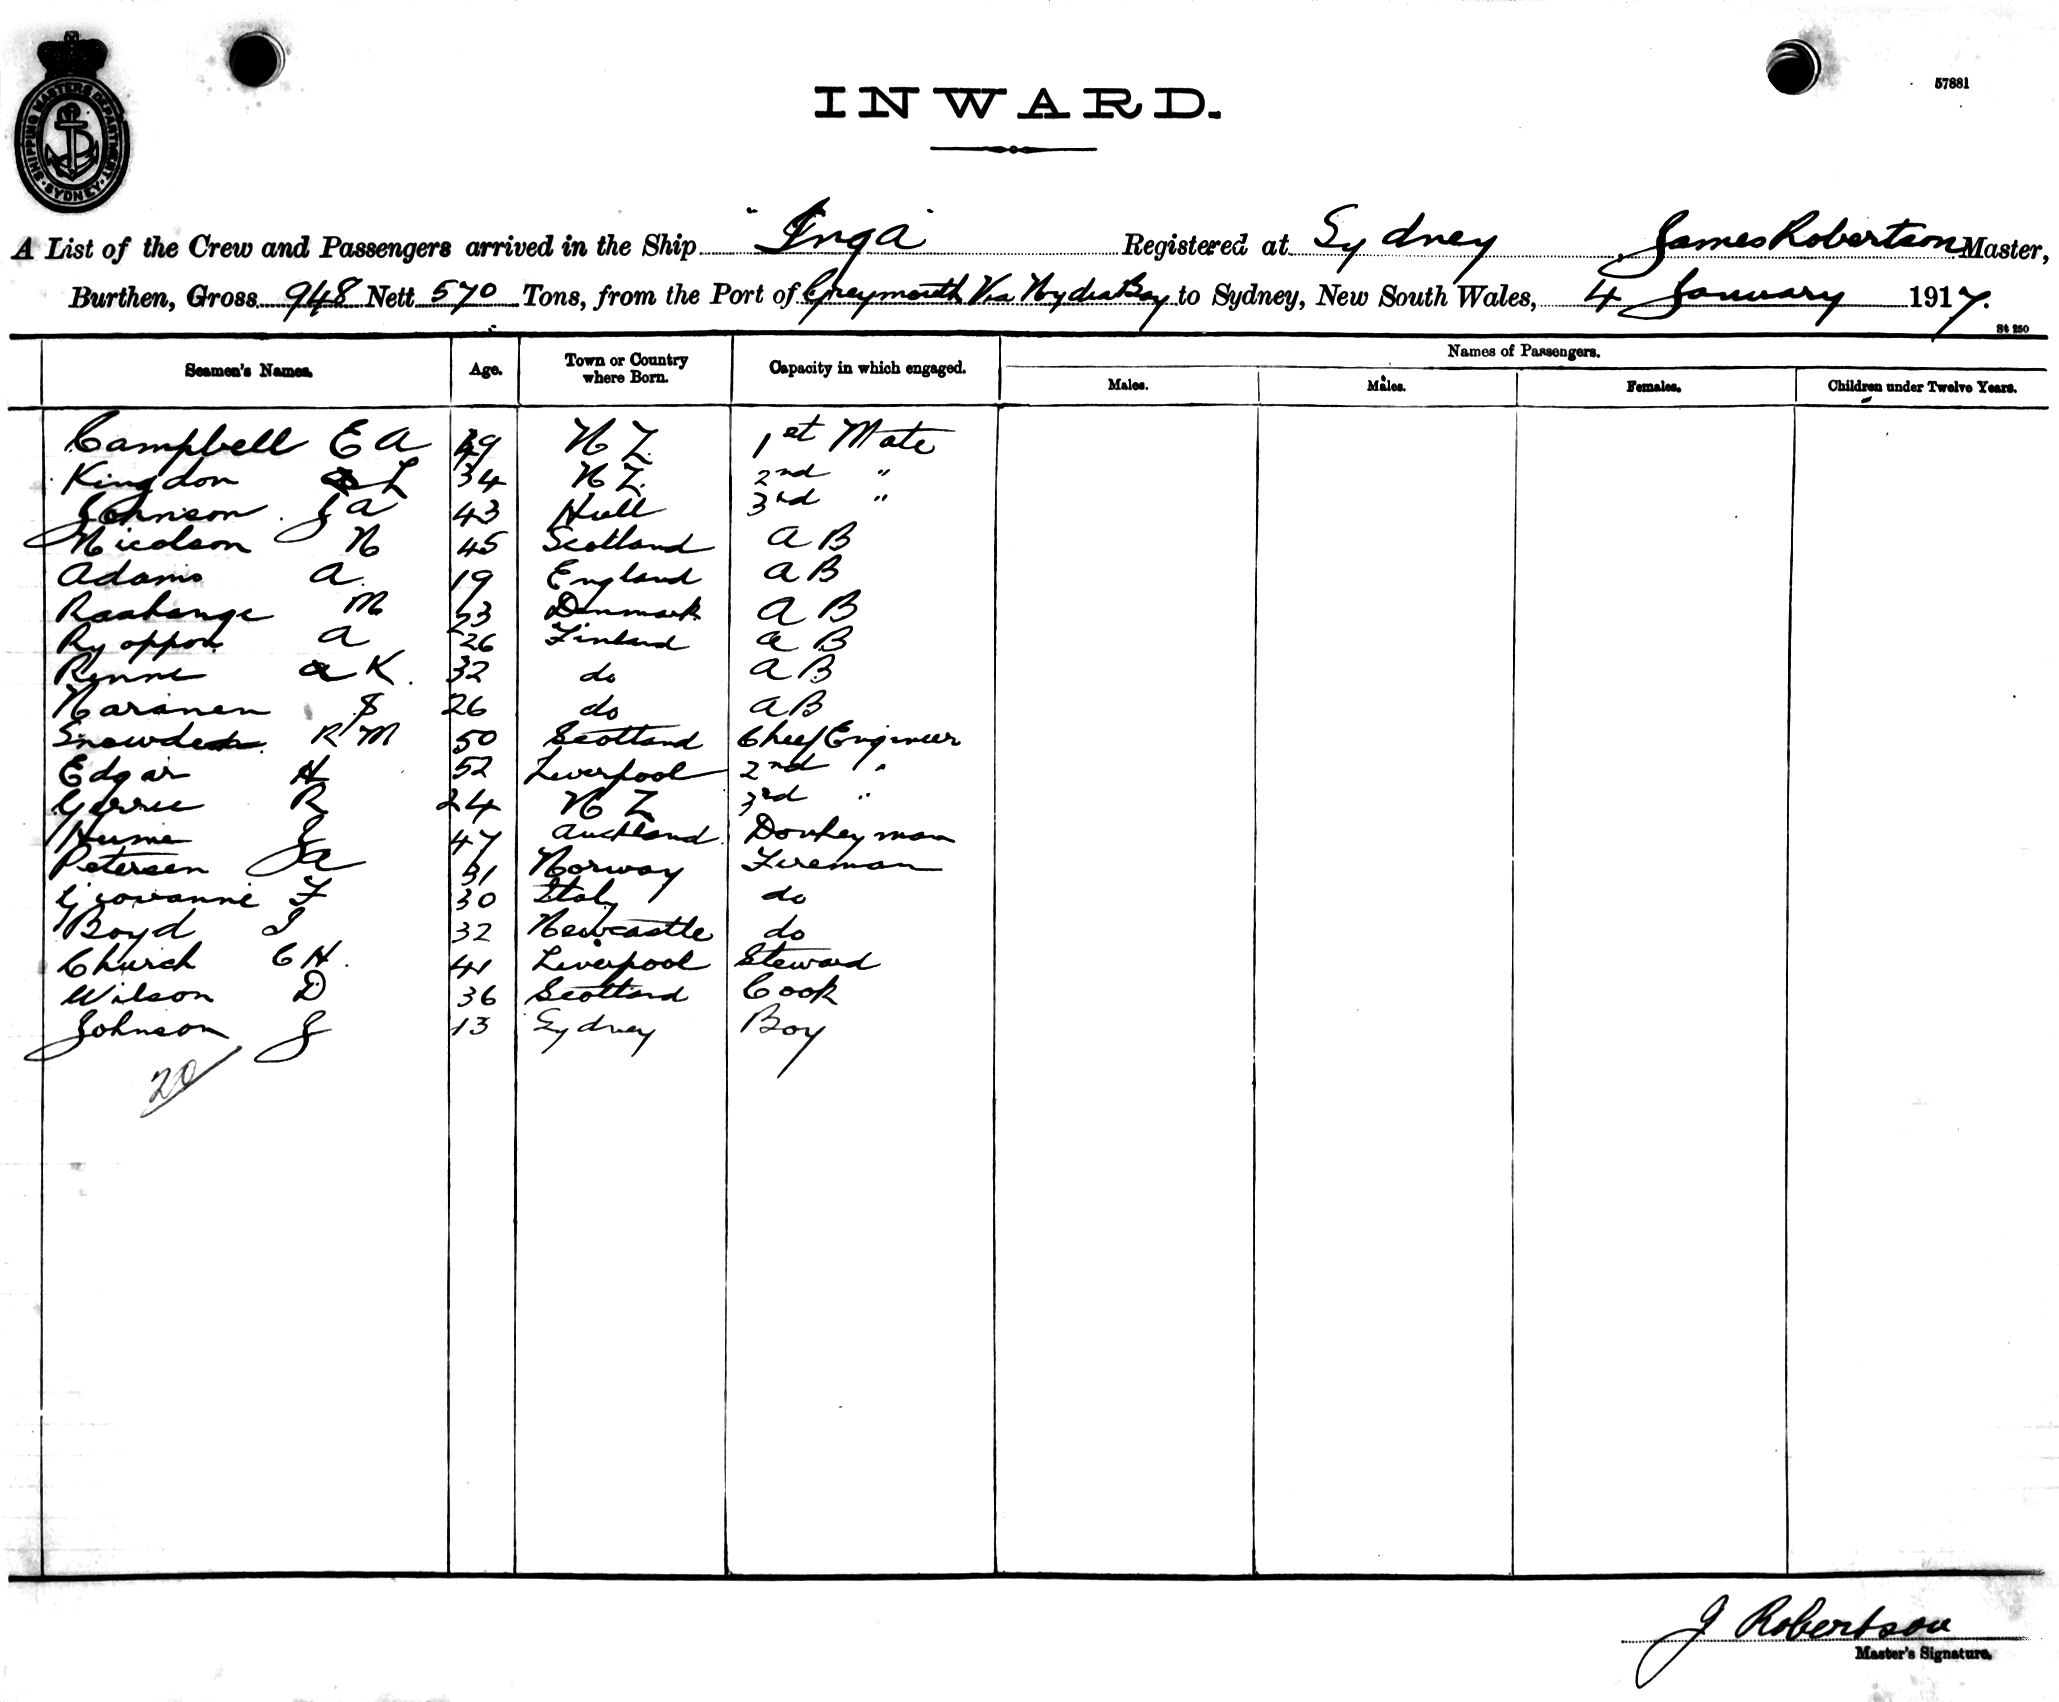 SHIPPING MASTERS DEPARTMENT
SYDNEY
57881
INWARD.
A List of the Crew and Passengers arrived in the Ship "Inga" Registered at Sydney, James Robertson Master,
Burthen, Gross 948 Nett 570 Tons, from the Port of Greymouth Via Nydia Bay to Sydney, New South Wales, 4 January 1917.
St 250
Seamen's Names. Age. Town or Country where Born. Capacity in which engaged. Names of Passengers.
Males. Males. Females. Children under Twelve Years.
Campbell E A 49 N Z. 1st Mate
Kingdon L 34 N Z. 2nd "
Johnson J A 43 Hull 3rd "
Nicolson N 45 Scotland A B
Adams A. 19 England A B
M 53 Denmark A B
Ryoppon A 26 Finland A B
Renne A K. 32 do A B
Naranen 26 do A B
Snowden R M 50 Scotland Chief Engineer
Edgar H 52 Liverpool 2nd "
Gerrie R 24 N Z 3rd "
Hume J 47 Auckland Donkeyman
Petersen A 31 Norway Fireman
Giovanni F 30 Italy do
Boyd J 32 Newcastle do
Church C H. 41 Liverpool Steward
Wilson D 36 Scotland Cook
Johnson J 13 Sydney Boy
20
J Robertson
Master's Signature.